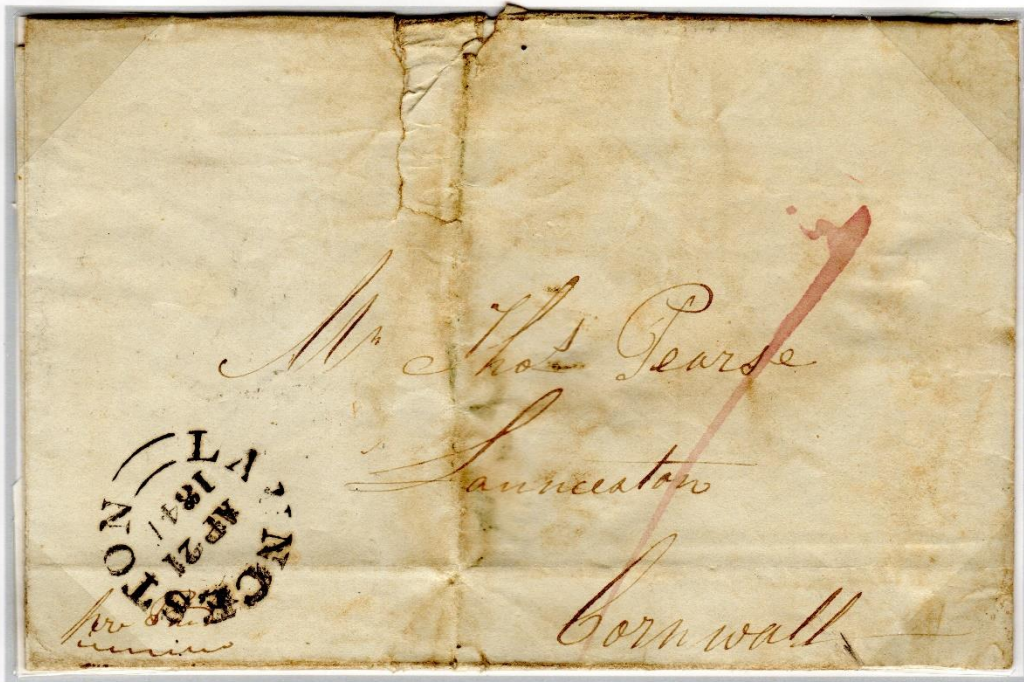 Mr Thos Pearse
Launceston
Cornwall
LAUNCESTON
AP 21
184